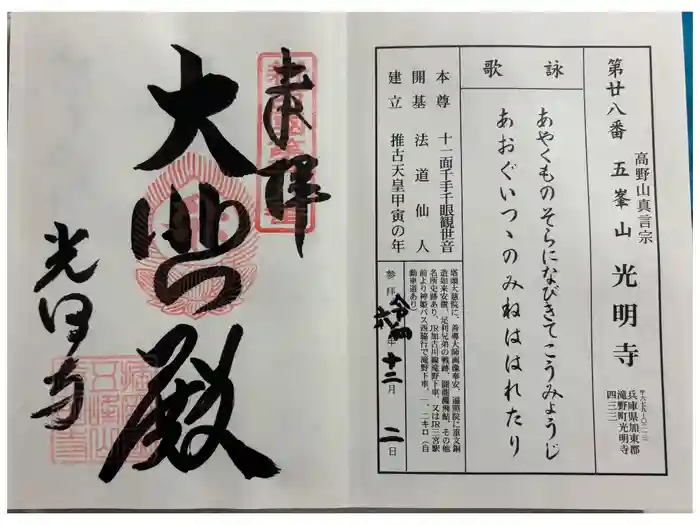 第廿八番 五峯山 光明寺
高野山真言宗
兵庫県加東郡
滝野町光明寺
四三三
詠歌
あやくものそらになびきてこうみょうじ
あおぐいつゝのみねははれたり
本尊 十一面千手千眼観世音
開基 法道仙人
建立 推古天皇甲寅の年
塔頭大慈院に、善導大師画像奉安、遍照院に重文銅
造如来安置、足利兄弟の戦跡、
名所史跡あり、JR加古川線滝野下車、又はJR三宮駅
前より神姫バス西脇行で滝野下車、一、二キロ(自
動車道あり)
参拝 令和六年 十二月 二日
奉拝
大悲殿
光明寺